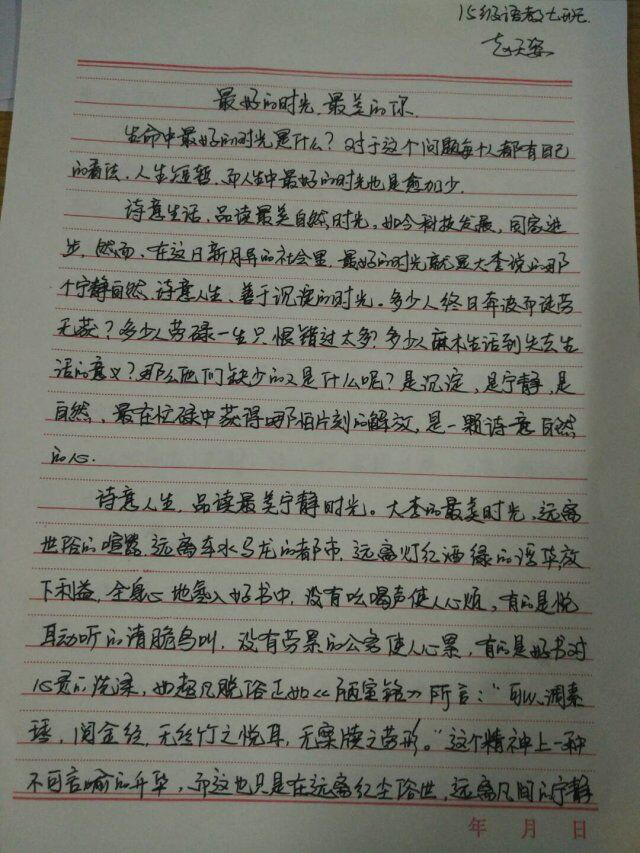 15级语教七班
赵天姿
最好的时光,最美的你
生命中最好的时光是什么?对于这个问题每个人都有自己
的看法,人生短暂,而人生中最好的时光也是愈加少.
诗意生活,品读最美自然时光。如今科技发展,国家进
步,然而,在这日新月异的社会里,最好的时光就是大李说的那
个宁静自然,诗意人生、善于沉淀的时光。多少人终日奔波而徒劳
无获?多少人劳碌一生只恨错过太多?多少人麻木生活到失去生
活的意义?那么他们缺少的又是什么呢?是沉淀,是宁静,是
自然,最在忙碌中获得哪怕片刻的解放,是一颗诗意自然
的心.
诗意人生,品读最美宁静时光。大李的最美时光,远离
世俗的喧嚣,远离车水马龙的都市,远离灯红酒绿的 放
下利益,全身心地融入好书中,没有吆喝声使人心烦,有的是悦
耳动听的清脆鸟叫,没有劳累的公务使人心累,有的是好书对
心灵的洗涤,如超凡脱俗正如《陋室铭》所言:"可以调素
琴,阅金经,无丝竹之悦耳,无案牍之劳形。"这个精神上一种
不可言喻的升华,而这也只是在远离红尘俗世,远离凡间的宁静
年 月 日